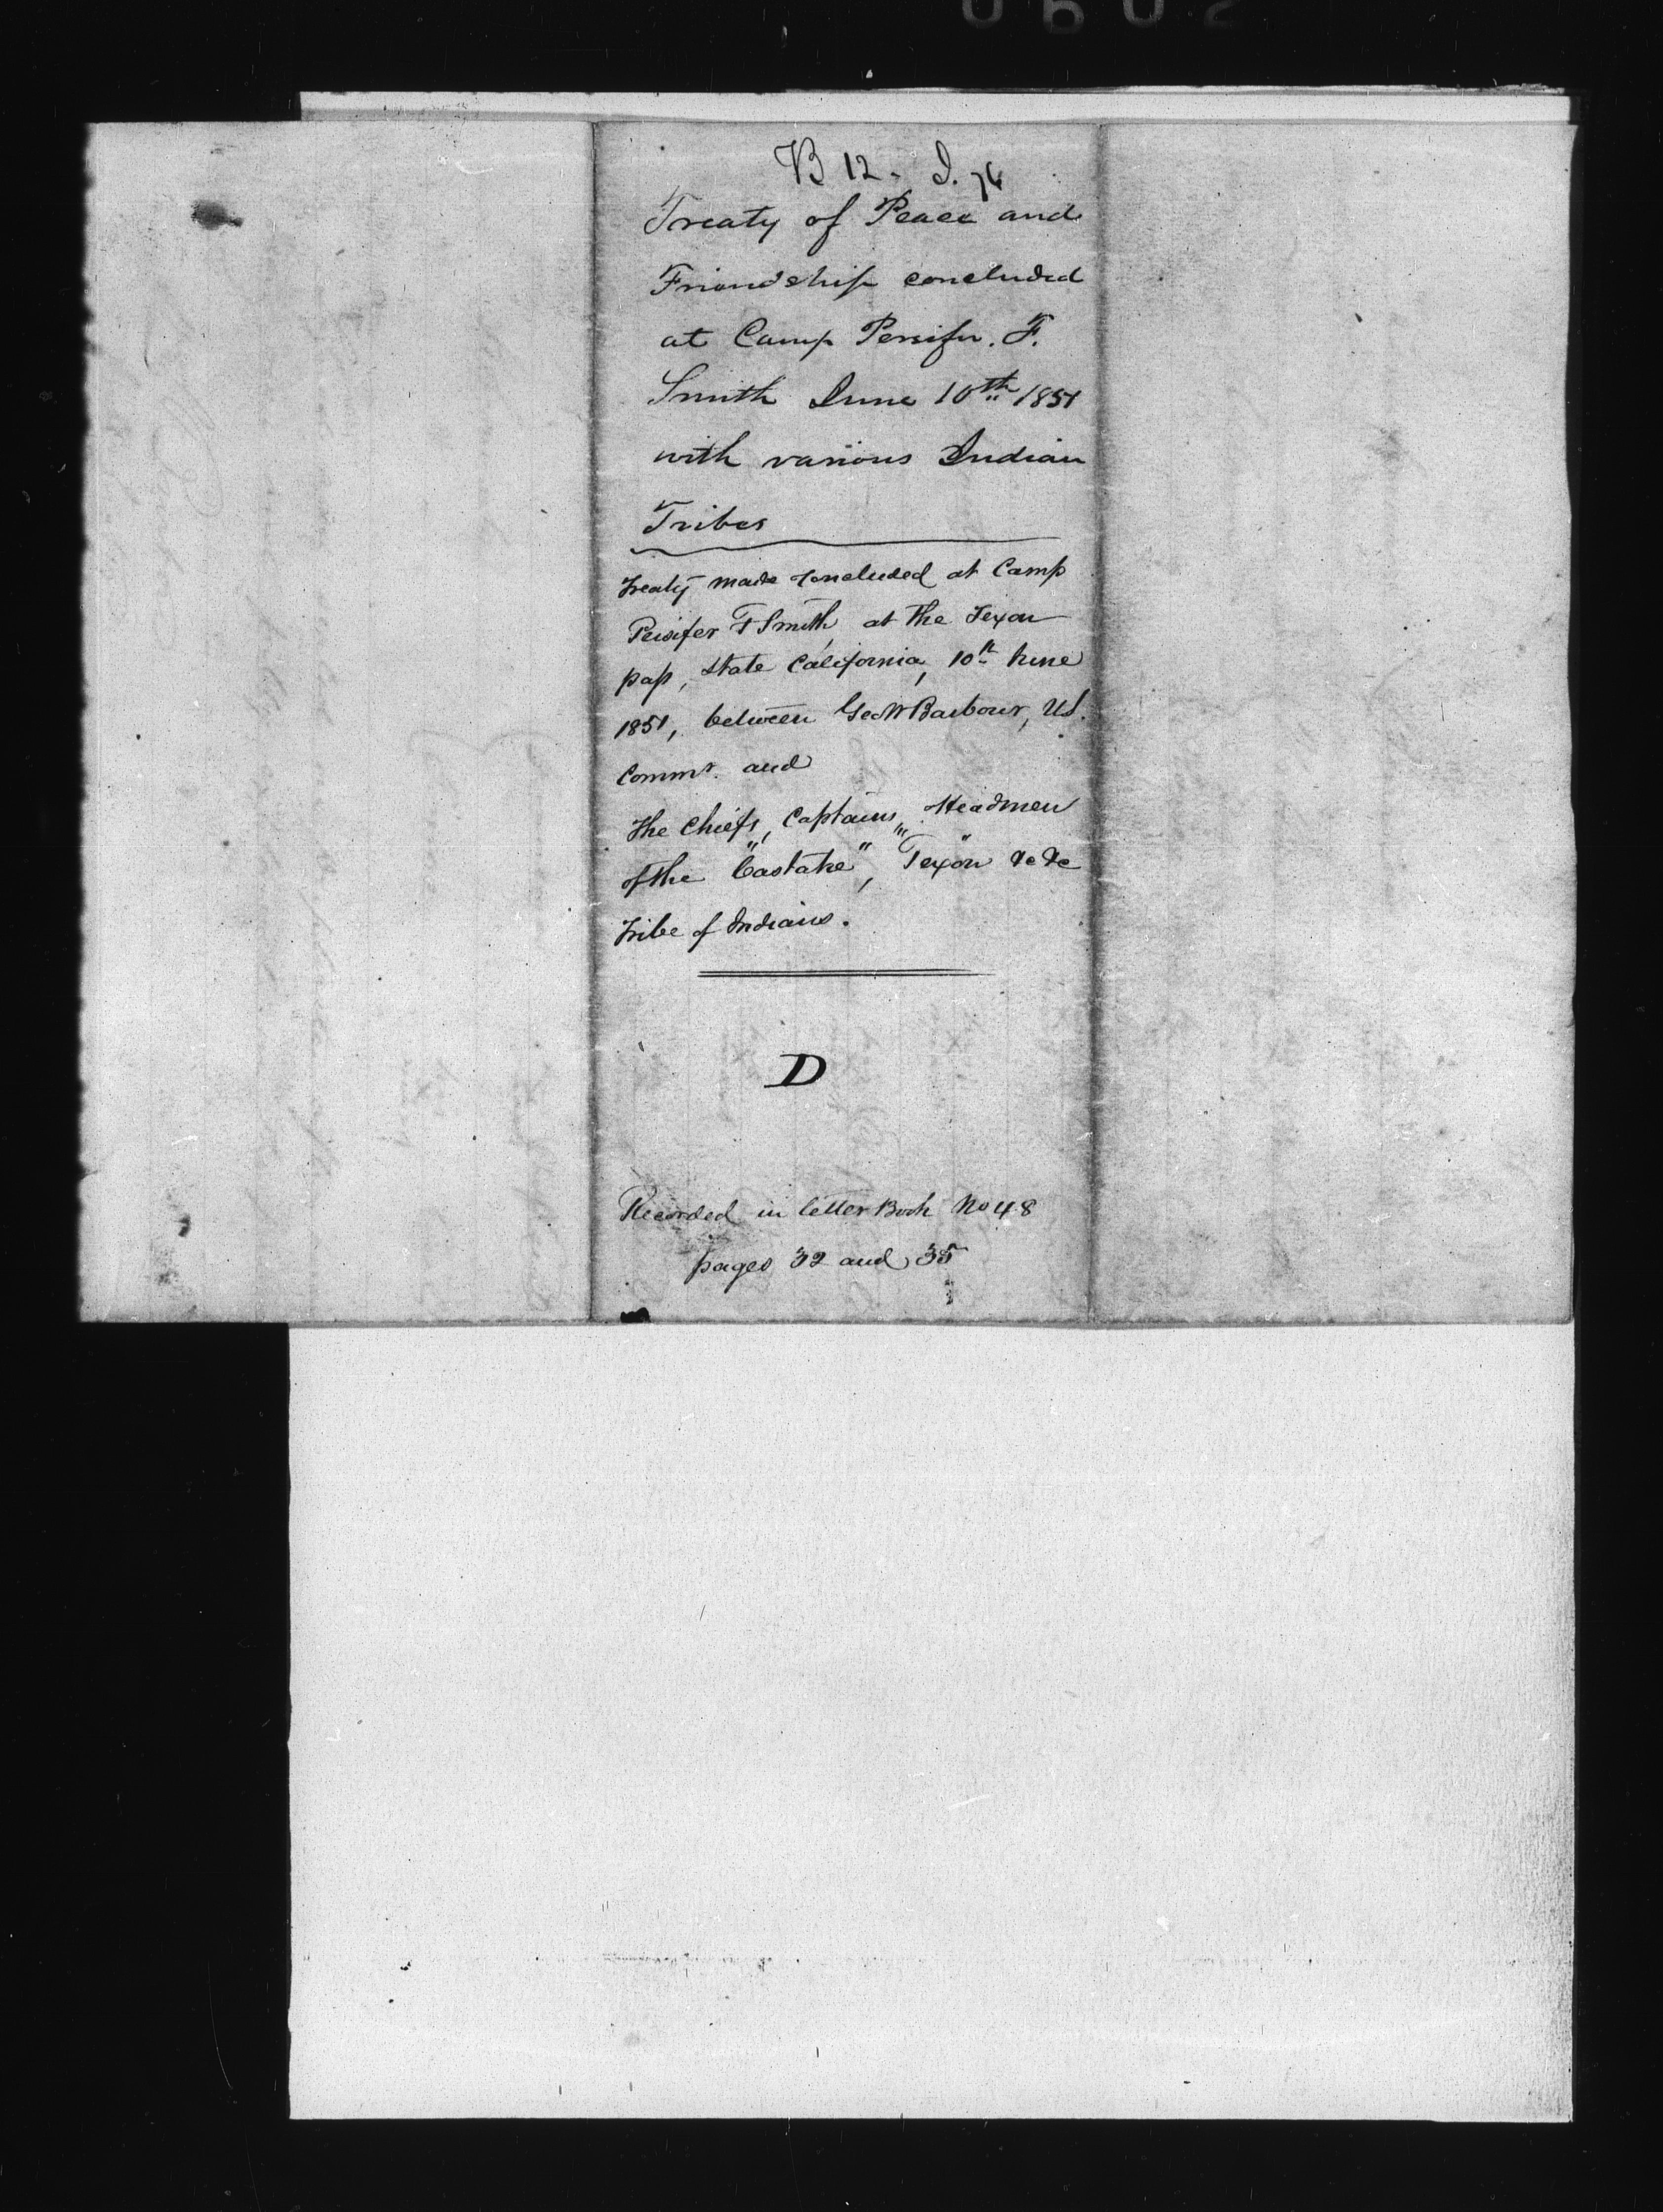 B 12. I. 76
Treaty of Peace and
Friendship concluded
at Camp Persifer. F.
Smith June 10th 1851
with various Indian
Tribes
Treaty made & concluded at Camp
Persifer F Smith, at the Texon
pass, State California, 10th June
1851, between Geo W Barbour, US.
Commr. and
the Chiefs, Captains, Headmen
of the "Castake", "Texon" &c &c
tribe of Indians.
D
Recorded in letter Book No 48
pages 32 and 35